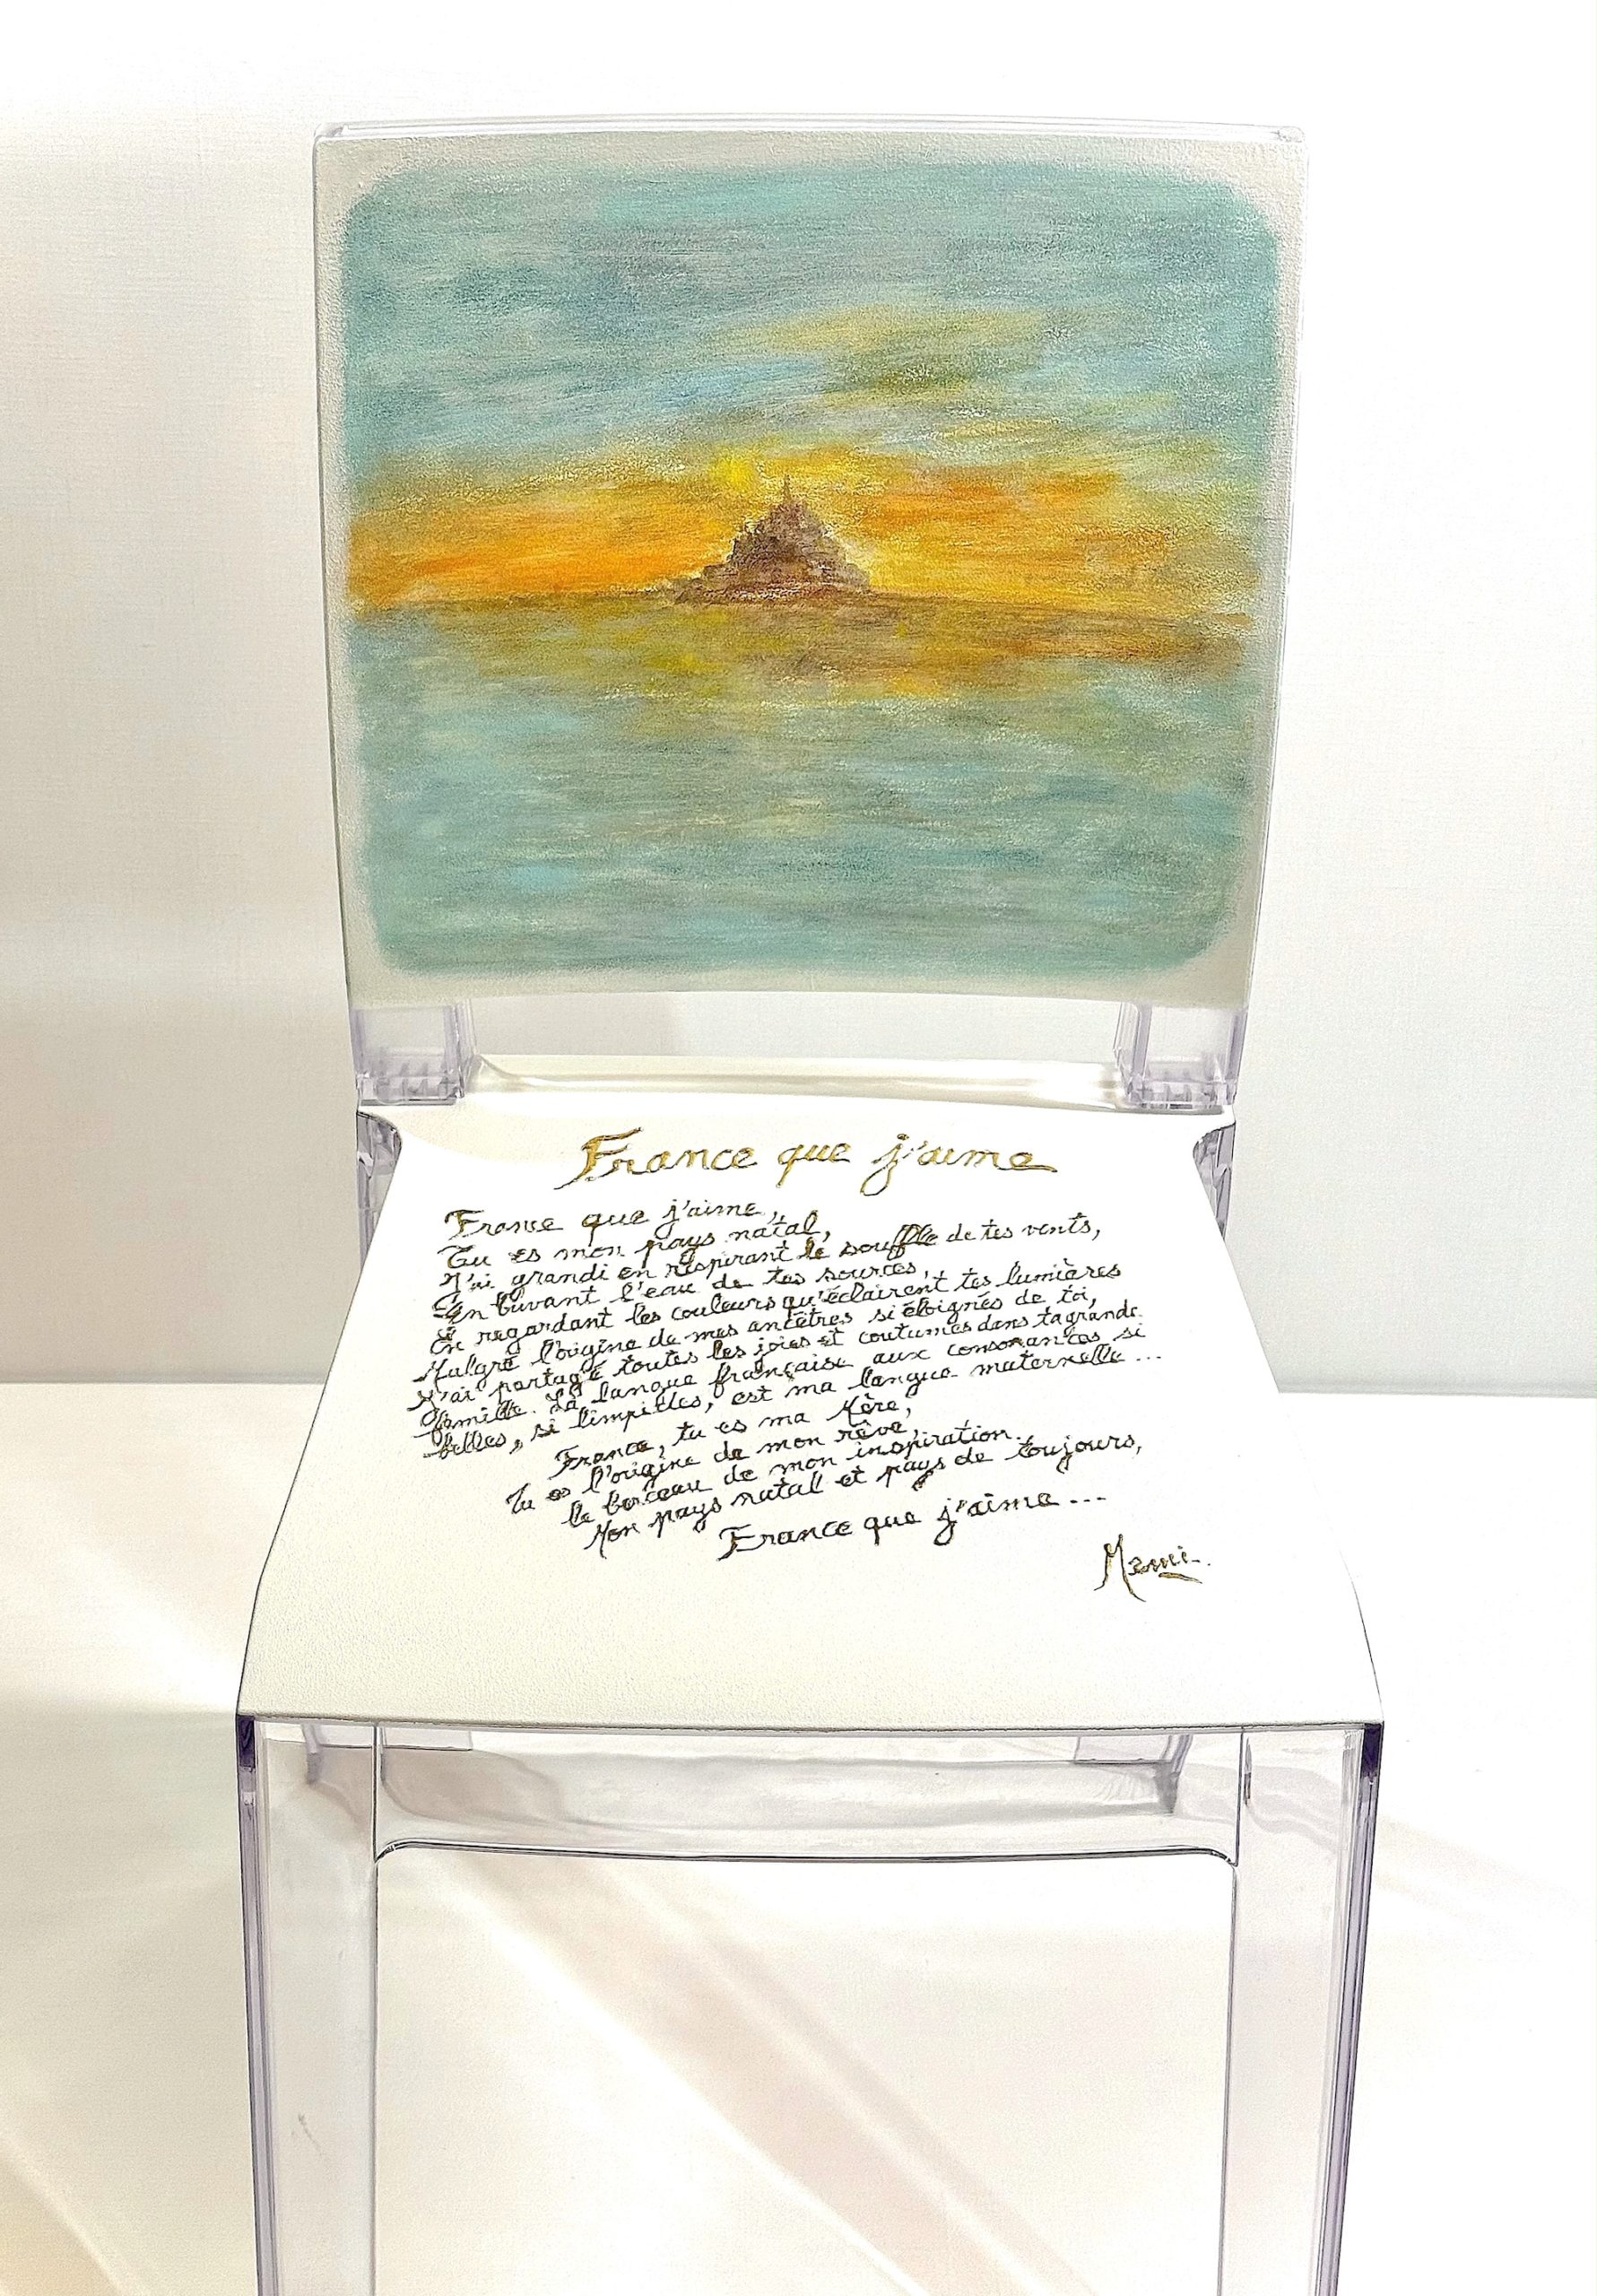 France que j'aime
France que j'aime,
Tu es mon pays natal,
J'ai grandi en respirant le souffle de tes vents,
En buvant l'eau de tes sources,
En regardant les couleurs qu'éclairent tes lumières
Malgré l'origine de mes ancêtres si éloignés de toi,
J'ai partagé toutes les joies et coutumes dans ta grande
famille. La langue française aux consonances si
belles, si limpides, est ma langue maternelle...
France, tu es ma Mère,
Tu es l'origine de mon rêve,
le berceau de mon inspiration.
Mon pays natal et pays de toujours,
France que j'aime...